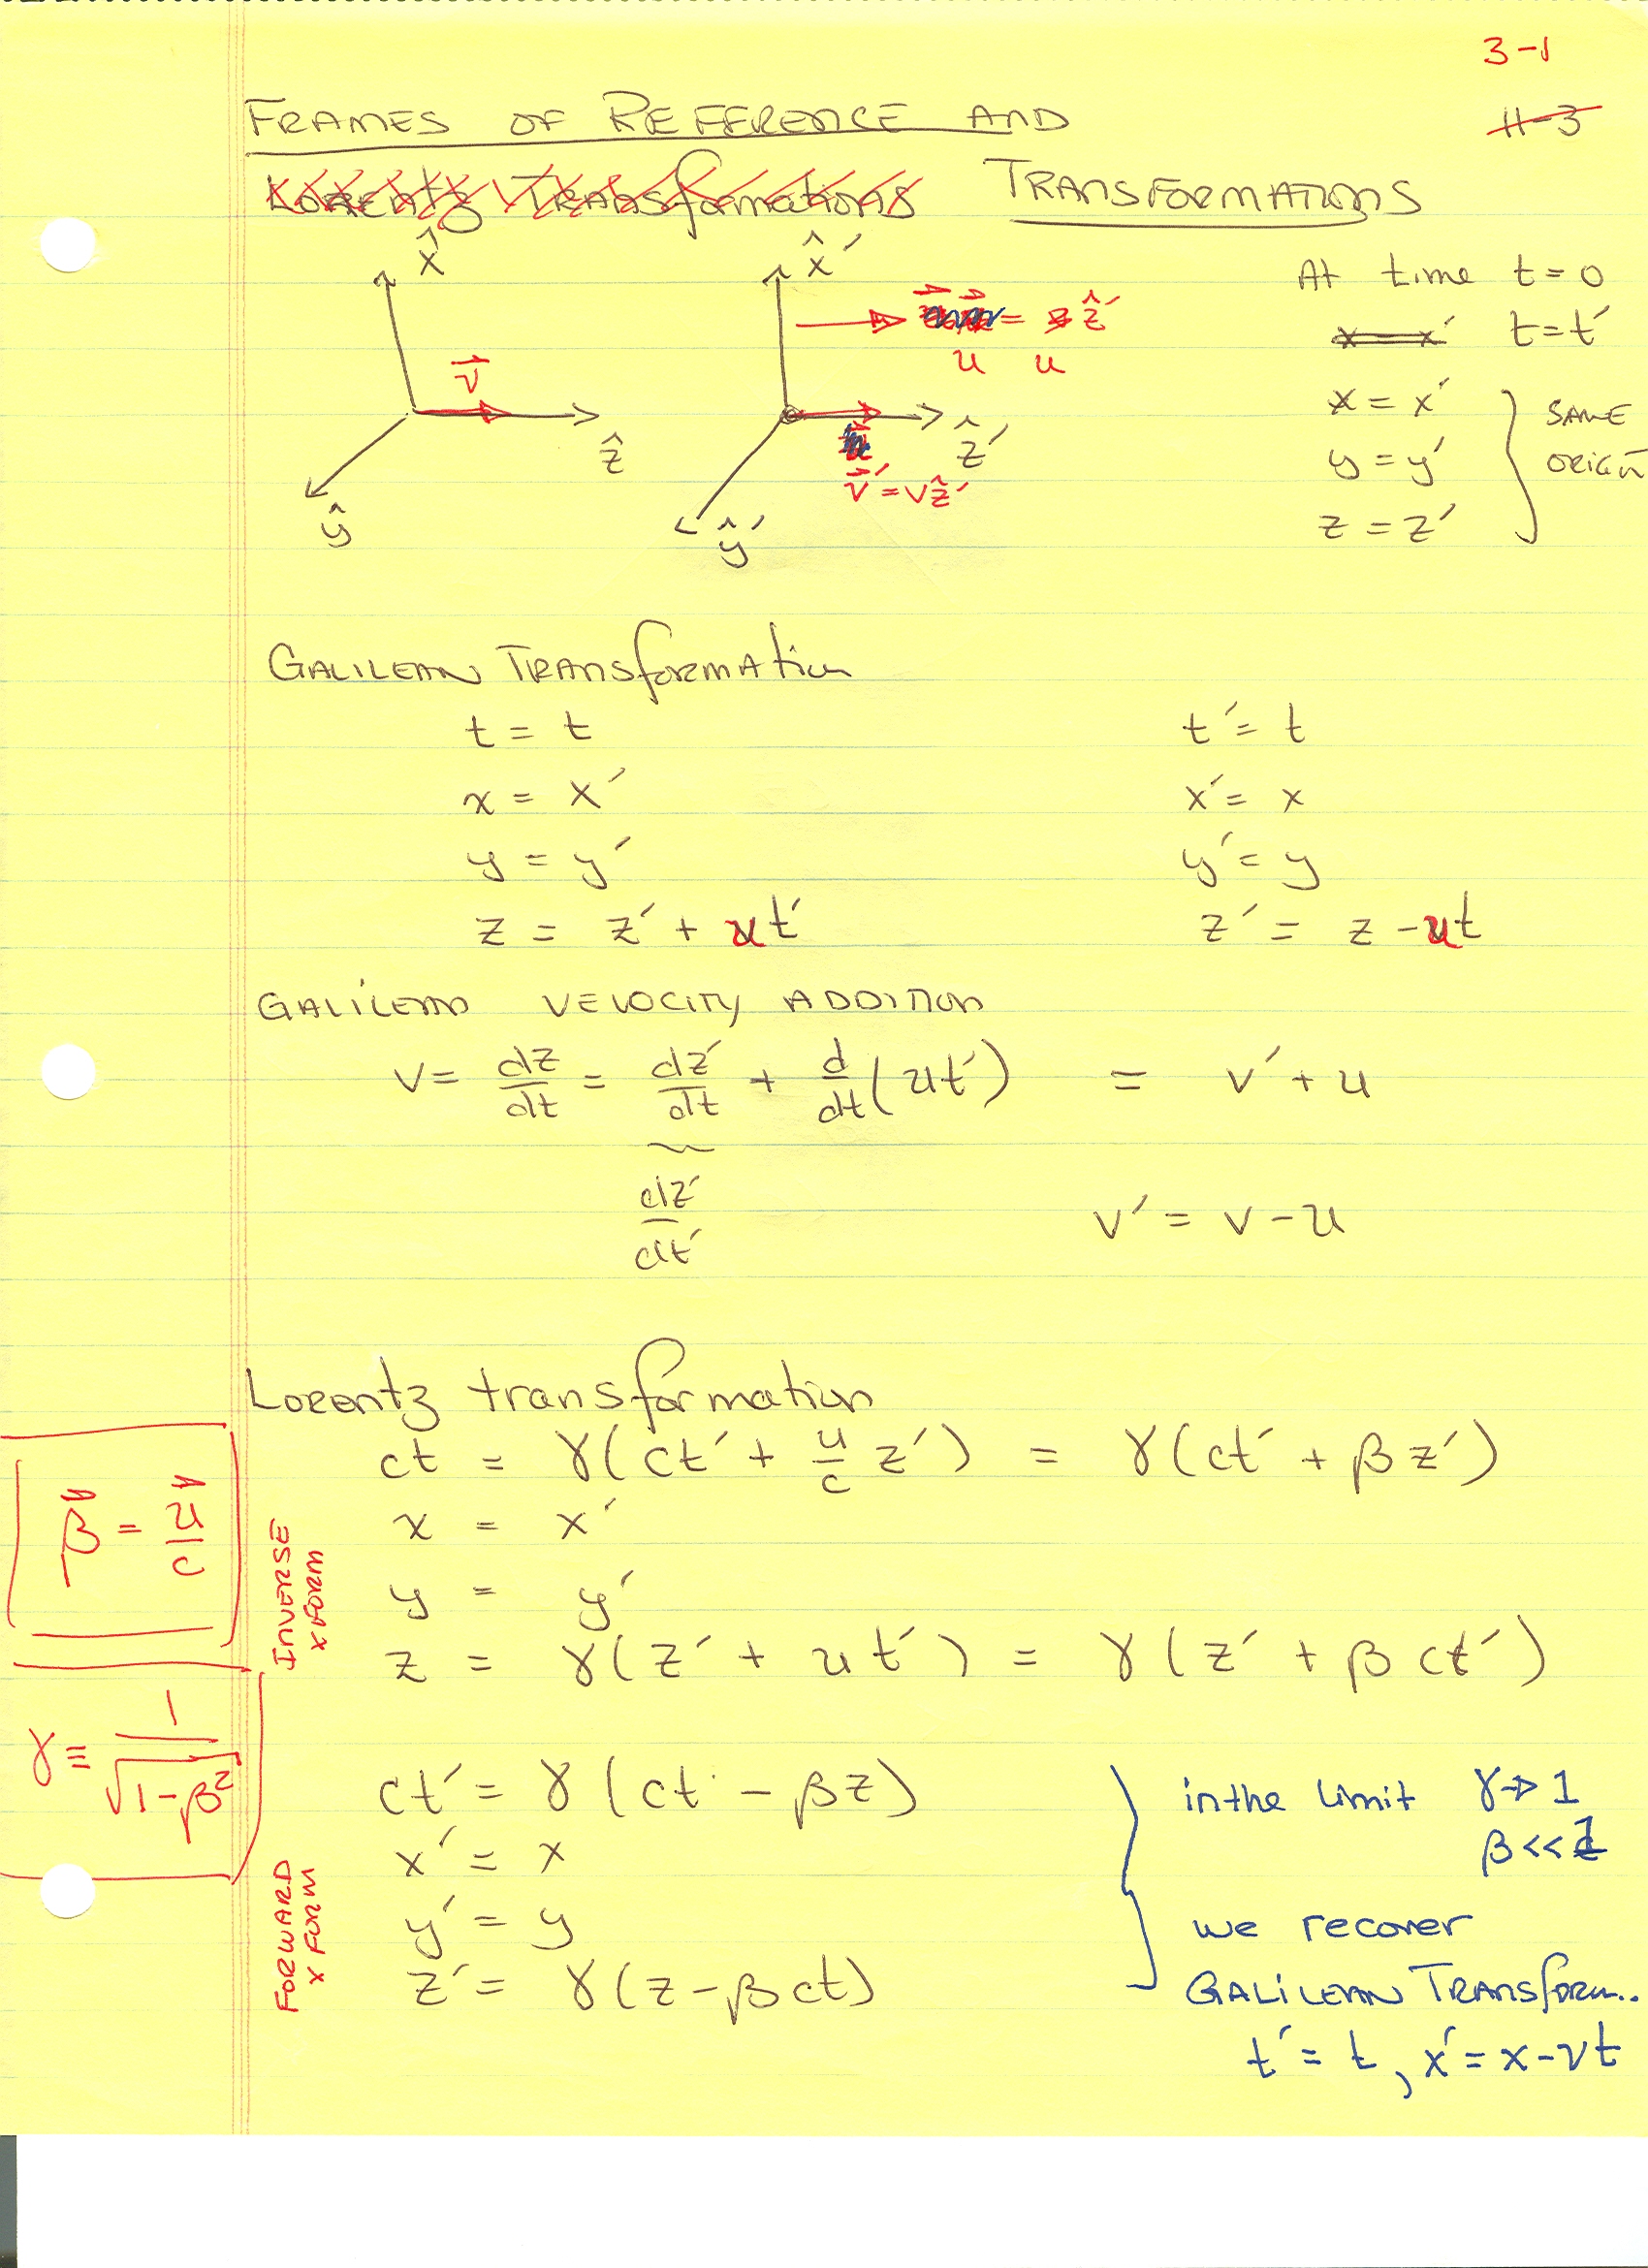 3-1
FRAMES OF REFERENCE AND
II-3
Lorentz Transformations TRANSFORMATIONS
x̂
x̂′
At time t=0
= ẑ′
u u
x = x′ t=t′
v⃗
x = x′
y = y′
z = z′
SAME
ORIGIN
ẑ
ẑ′
v⃗′=vẑ′
ŷ
ŷ′
GALILEAN TRANSformAtion
t = t t′= t
x = x′ x′= x
y = y′ y′= y
z = z′ + ut′ z′ = z -ut
GALILEAN VELOCITY ADDITION
v= dz/dt = dz′/dt + d/dt(ut′) = v′+u
dz′/dt′
v′ = v-u
Lorentz transformation
ct = γ(ct′ + u/c z′) = γ(ct′ + βz′)
x = x′
y = y′
z = γ(z′ + ut′) = γ(z′ + βct′)
INVERSE
XFORM
β⃗ = u⃗/c
γ ≡ 1/√1-β²
ct′ = γ(ct - βz)
x′ = x
y′ = y
z′ = γ(z-βct)
FORWARD
XFORM
in the limit γ→1
β<<1
we recover
GALILEAN TRANSform..
t′= t, x′= x-vt